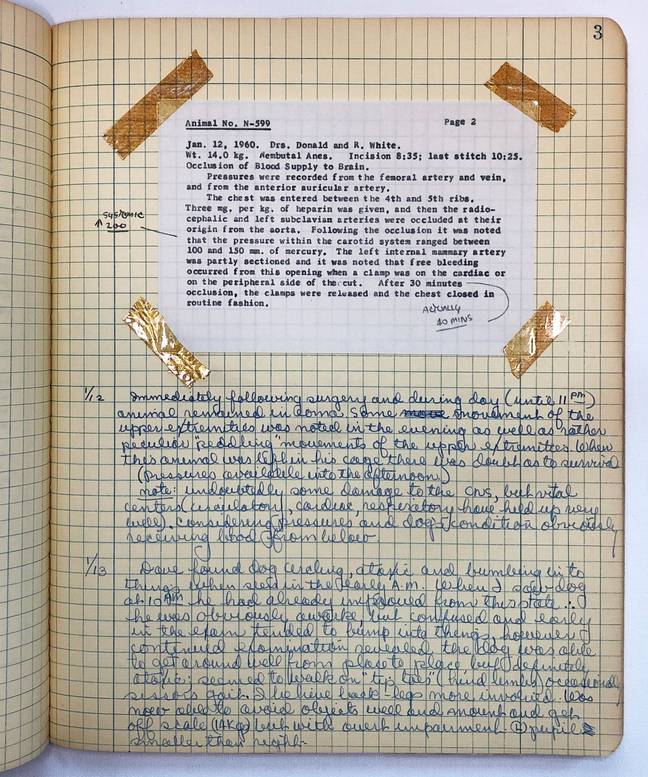 3
Animal No. N-599 Page 2
Jan. 12, 1960. Drs. Donald and R. White.
Wt. 14.0 kg. Nembutal Anes. Incision 8:35; last stitch 10:25.
Occlusion of Blood Supply to Brain.
Pressures were recorded from the femoral artery and vein,
and from the anterior auricular artery.
The chest was entered between the 4th and 5th ribs.
Three mg. per kg. of heparin was given, and then the radio-
cephalic and left subclaviam arteries were occluded at their
origin from the aorta. Following the occlusion it was noted
that the pressure within the carotid system ranged between
100 and 150 mm. of mercury. The left internal mammary artery
was partly sectioned and it was noted that free bleeding
occurred from this opening when a clamp was on the cardiac or
on the peripheral side of the cut. After 30 minutes
occlusion, the clamps were released and the chest closed in
routine fashion.
systemic
↑ 200
Actually
40 mins
1/12 Immediately following surgery and during day (until 11 pm)
animal remained in coma. Some movement of the
upper extremities was noted in the evening as well as rather
peculiar "peddling" movements of the upper extremities. When
this animal was left in his cage there was doubt as to survival
(pressures available into the afternoon)
note: undoubtedly some damage to the CNS, but vital
centers (circulatory, cardiac, respiratory have held up very
well), considering pressures and dog's condition obviously
receiving blood from below.
1/13 Dave found dog circling, ataxic and bumbing in to
things when seen in the early A.M. When I saw dog
at 10 AM he had already improved from this state.
he was obviously awake, but confused and early
in the exam tended to bump into things, however
continued examination revealed the dog was able
to get around well from place to place but definitely
ataxic; seemed to walk on "tip toe" (hind limbs) occasionally
sissors gait. back-legs more involved. Was
now able to avoid objects well and mount and get
off scale (14Kg) but with overt impairment. pupil
smaller than right.